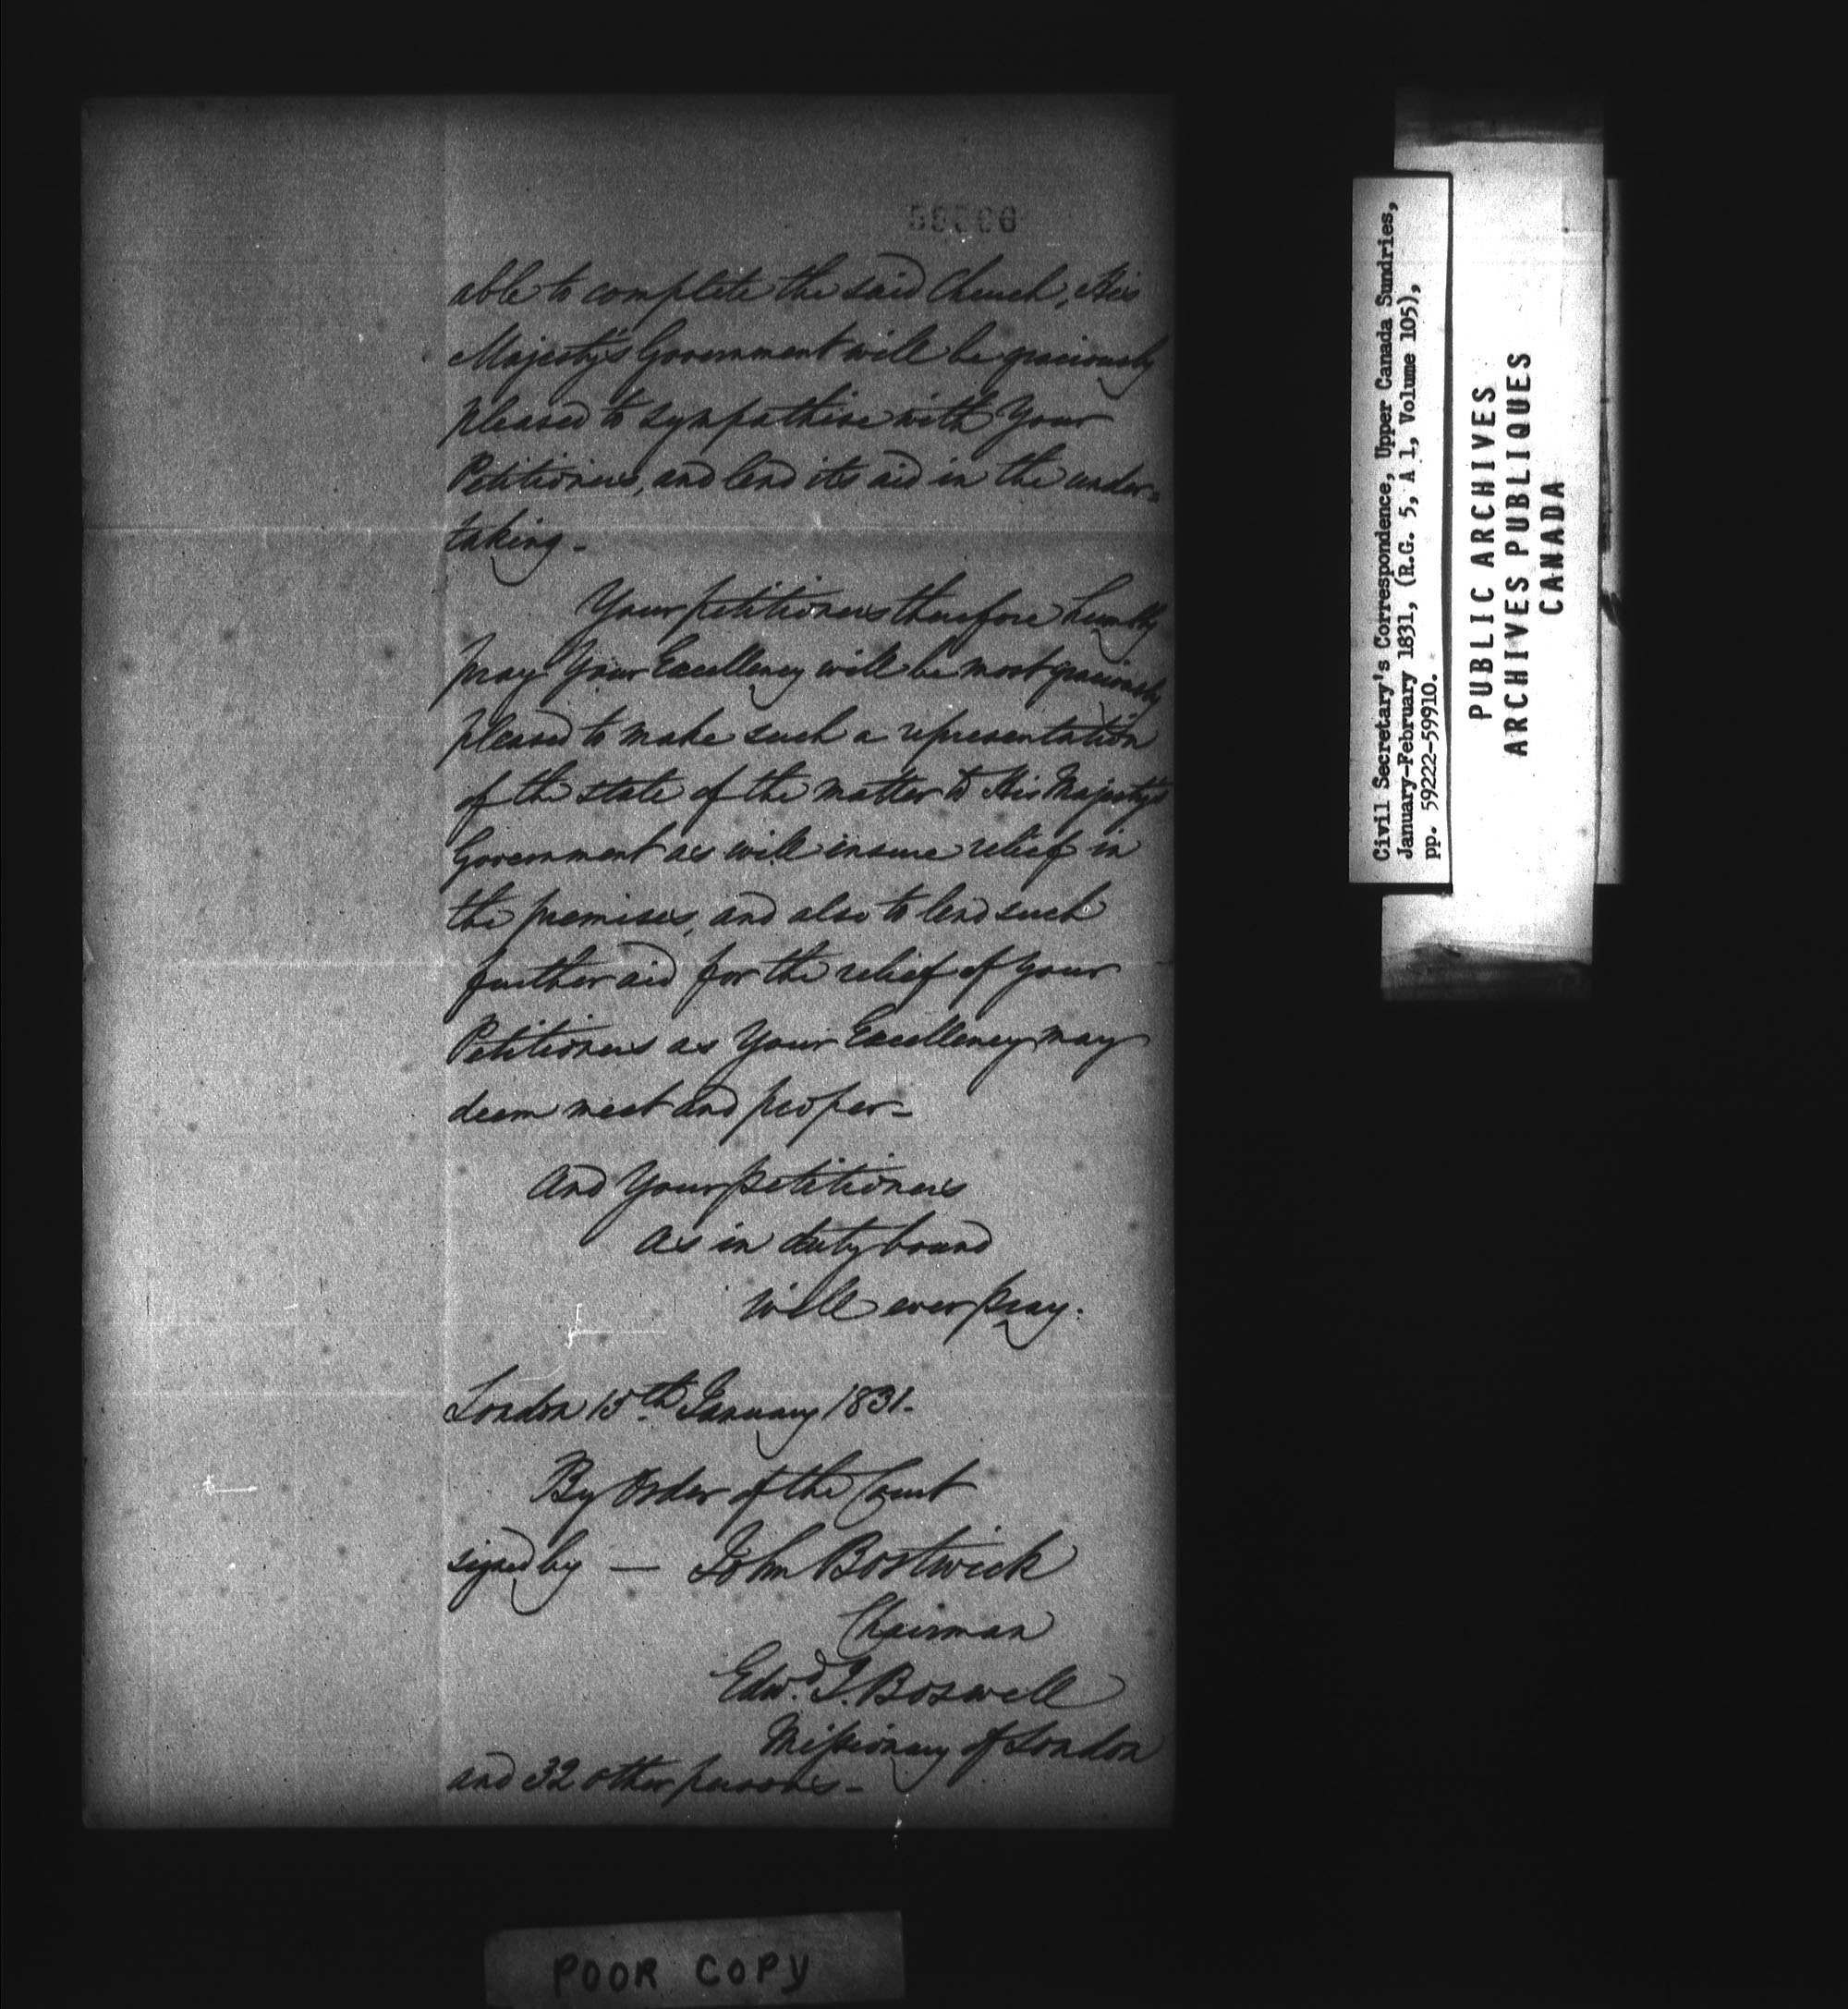 able to complete the said Church, His
Majesty's Government will be graciously
pleased to sympathise with Your
Petitioners, and lend its aid in the under-
taking -
Your petitioners therefore humbly
pray Your Excellency will be most graciously
pleased to make such a representation
of the state of the matter to His Majesty's
Government as will insure relief in
the premises, and also to lend such
further aid for the relief of your
Petitioners as Your Excellency may
deem meet and proper -
And Your petitioners
As in duty bound
will ever pray.
London 15th January 1831.
By Order of the Court
signed by — John Bostwick
Chairman
Edwd. J. Boswell
Missionary of London
and 32 other persons -
POOR COPY
Civil Secretary's Correspondence, Upper Canada Sundries,
January-February 1831, (R.G. 5, A 1, Volume 105),
pp. 59222-59910.
PUBLIC ARCHIVES
ARCHIVES PUBLIQUES
CANADA